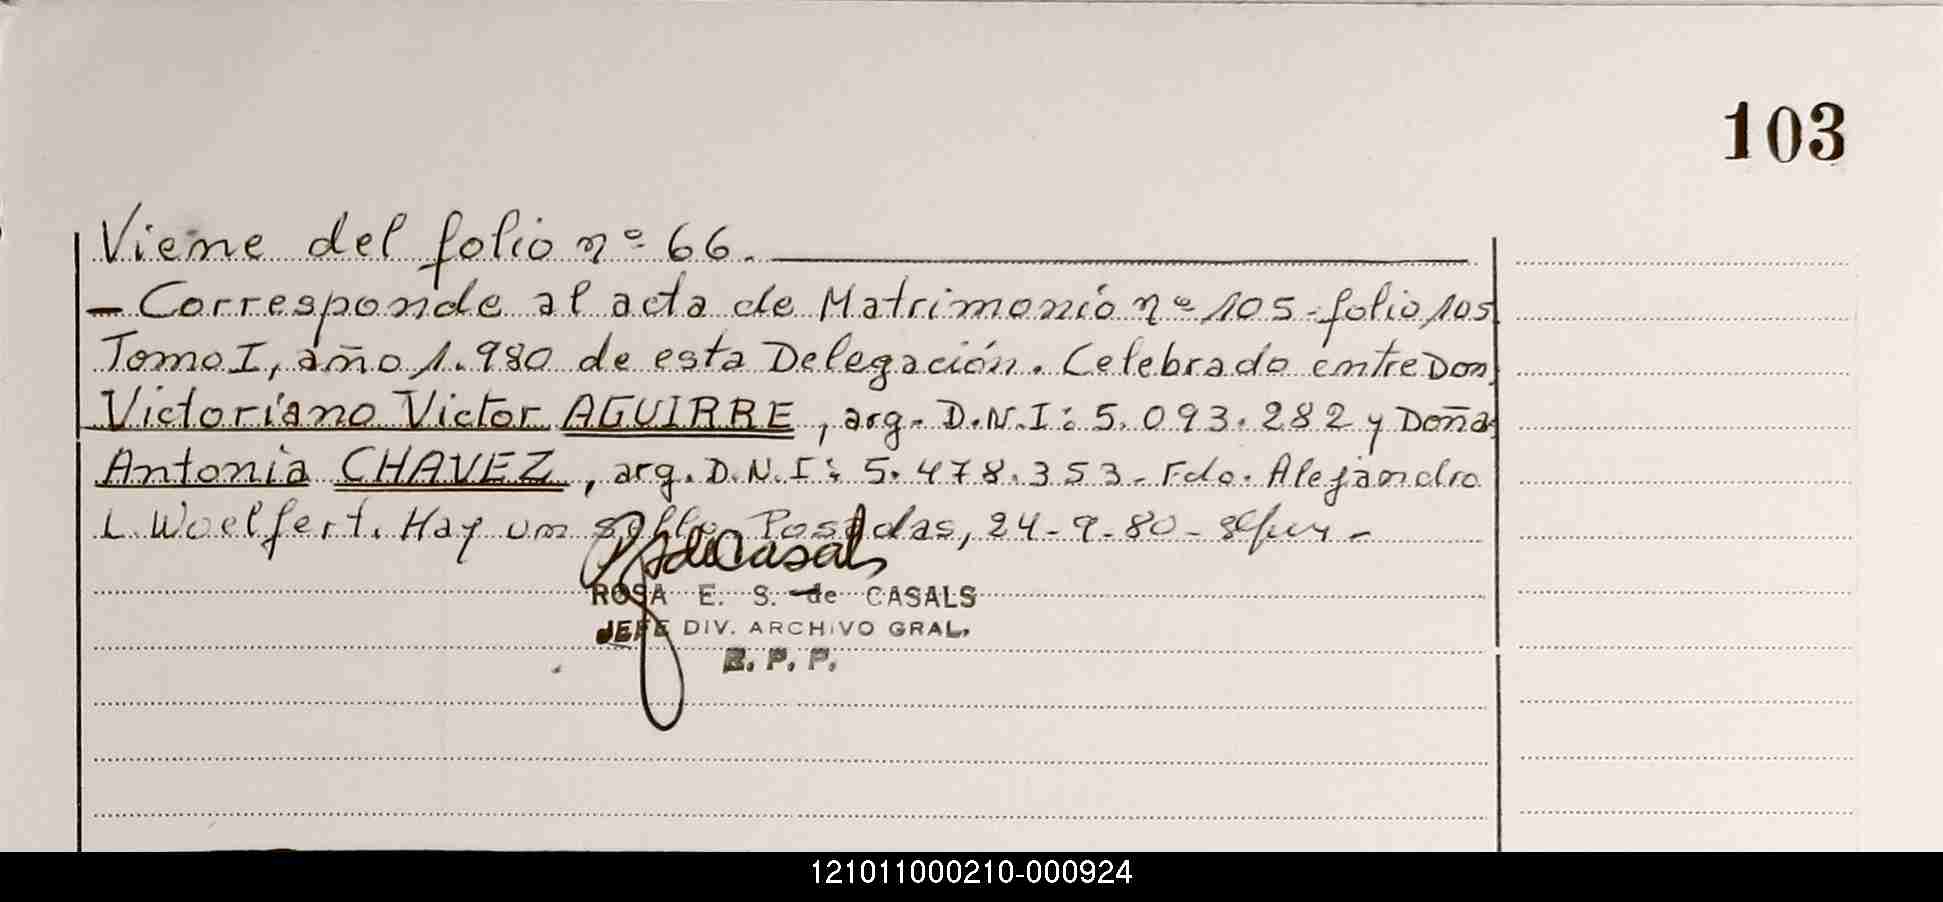 103
Viene del folio nº 66.
- Corresponde al acta de Matrimonio nº 105-folio 105
Tomo I, año 1.980 de esta Delegación. Celebrado entre Don
Victoriano Victor AGUIRRE, arg. D.N.I: 5.093.282 y Doña
Antonia CHAVEZ, arg. D.N.I: 5.478.353- Fdo. Alejandro
L. Woelfert. Hay un sello Posadas, 24-9-80-
ROSA E. S. de CASALS
JEFE DIV. ARCHIVO GRAL.
R. P. P.
121011000210-000924